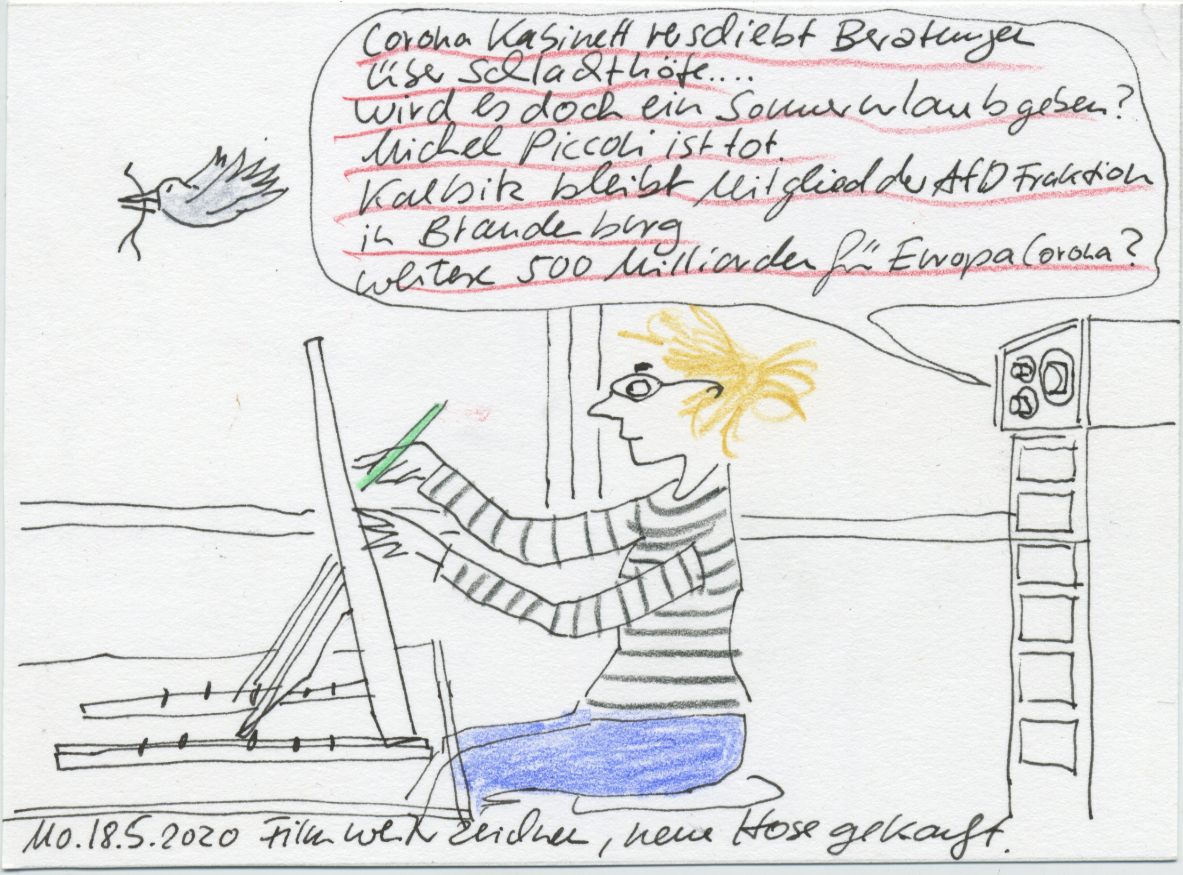 Corona Kabinett verschiebt Beratungen
über Schlachthöfe....
wird es doch ein Sommerurlaub geben?
Michel Piccoli ist tot
Kalbitz bleibt Mitglied der AfD Fraktion
in Brandenburg
weitere 500 Milliarden für Europa Corona?
Mo. 18.5.2020 Film weiter zeichnen, neue Hose gekauft.